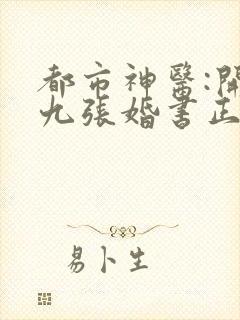 都市神醫:開
九張婚書正
易卜生